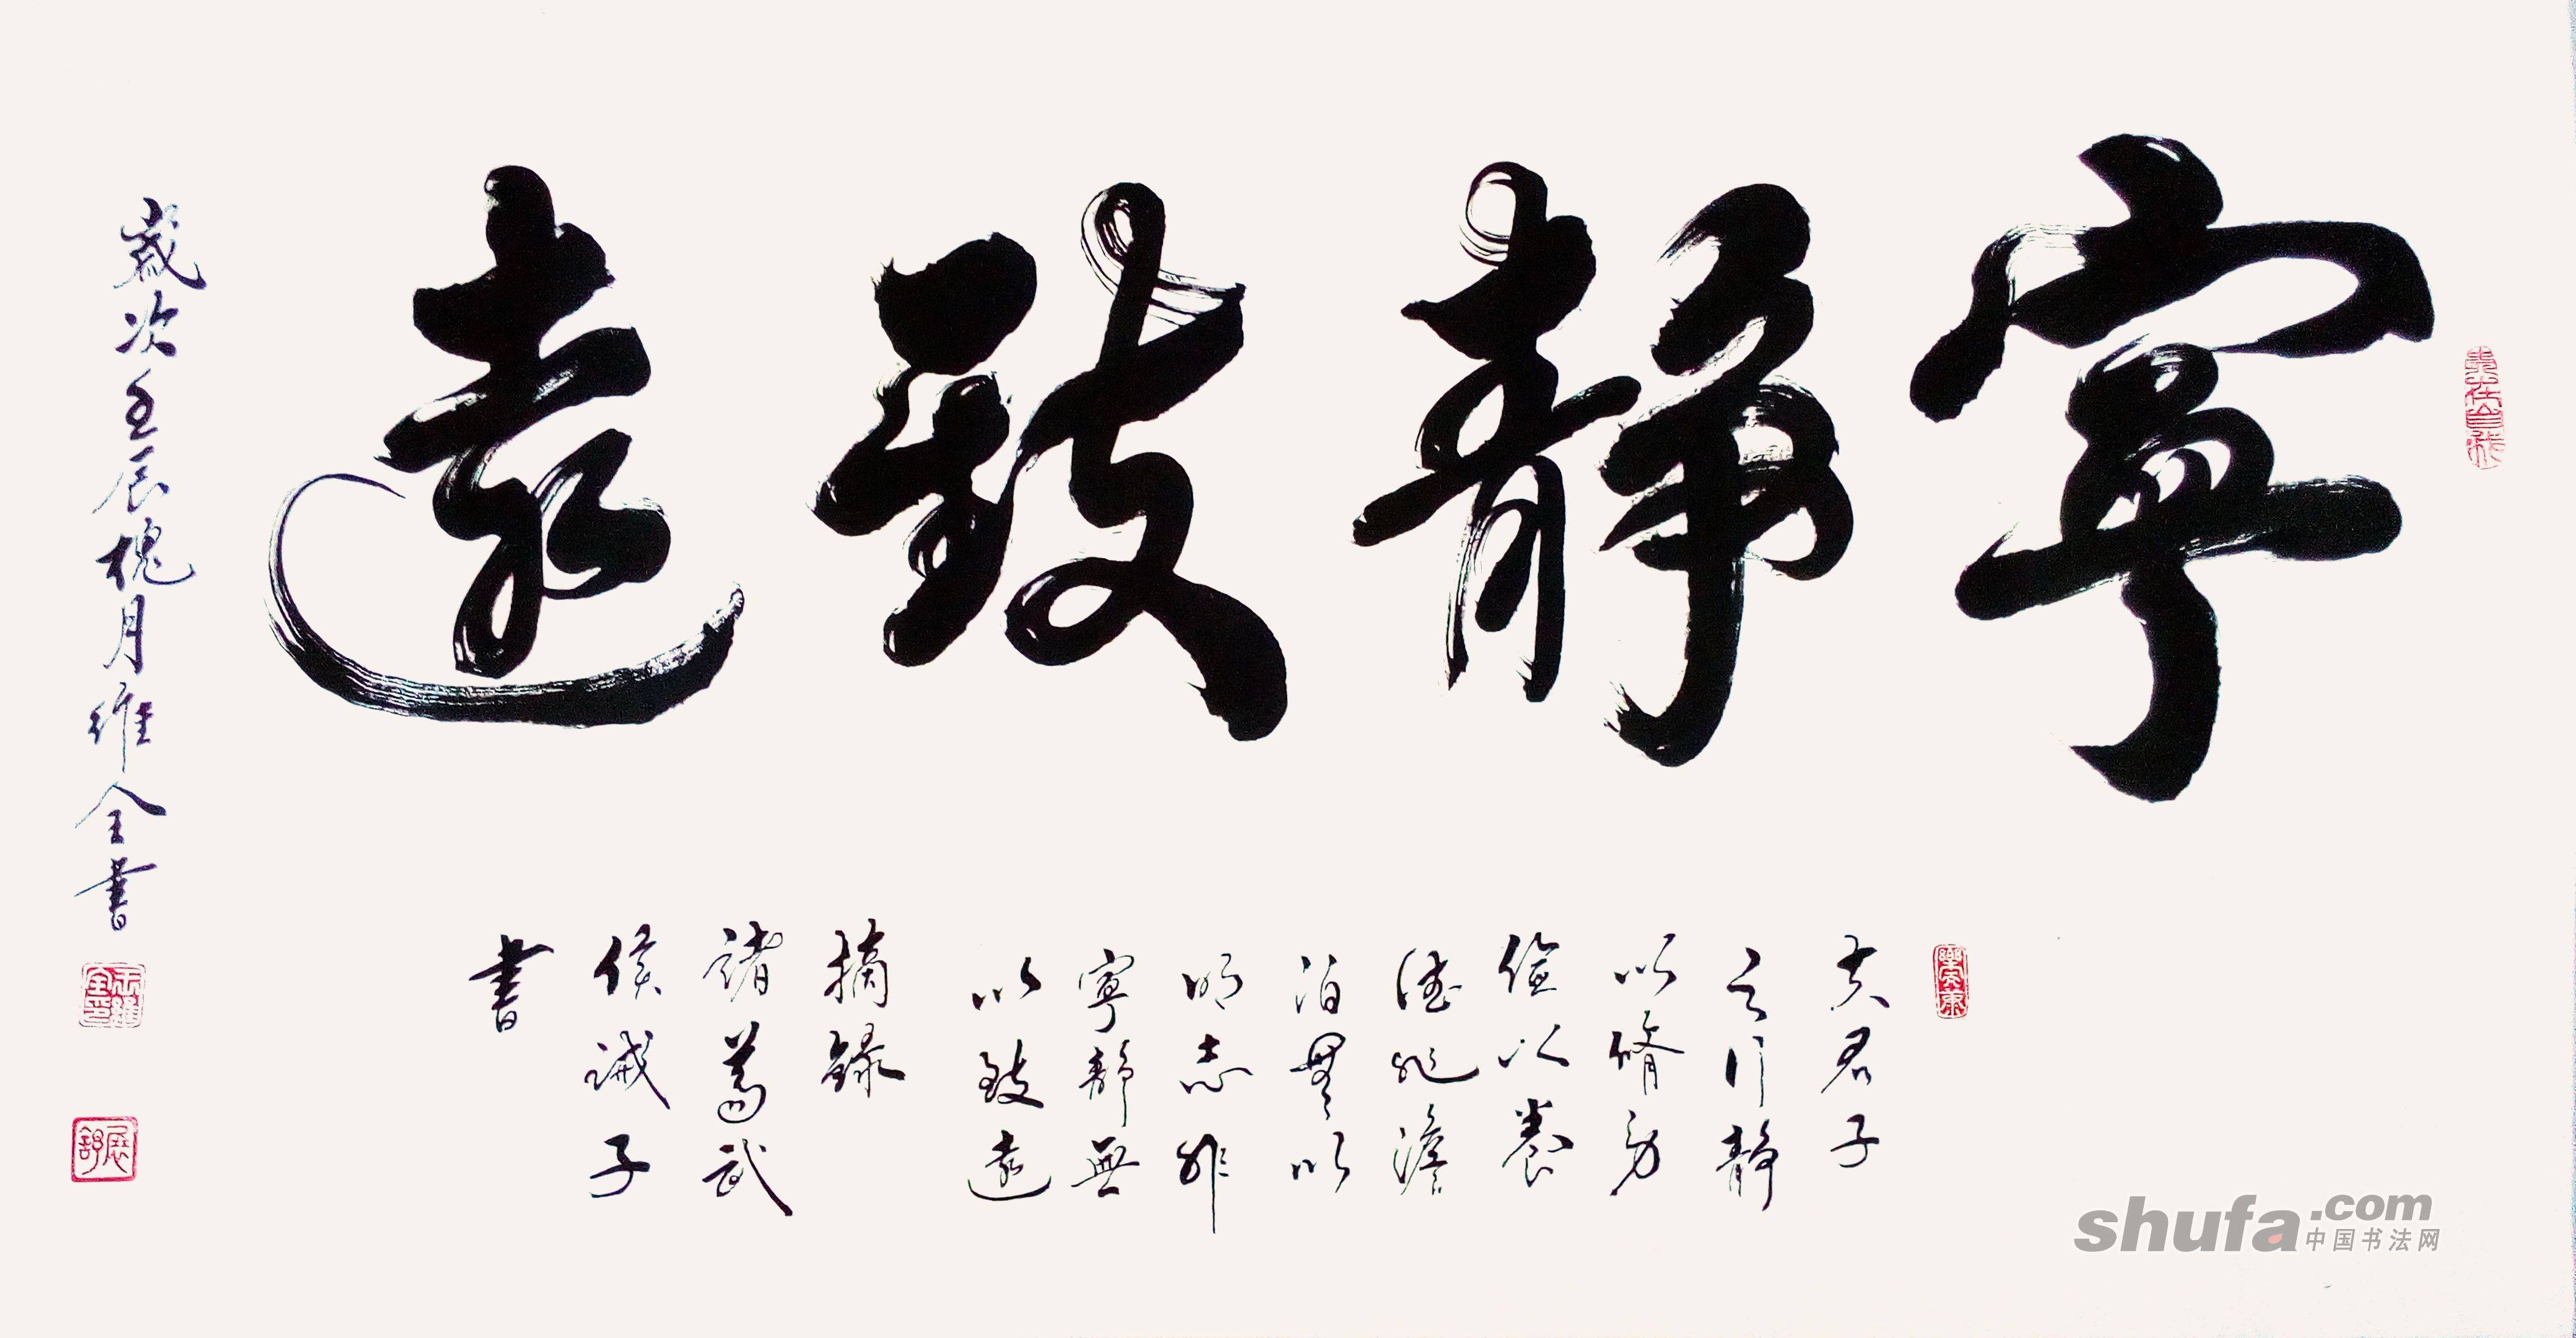 寧靜致遠
夫君子
之行靜
以脩身
儉以養
德非澹
泊無以
明志非
寧靜無
以致遠
摘錄
諸葛武
侯誡子
書
歲次壬辰槐月維全書
王維全印
shufa.com
中国书法网